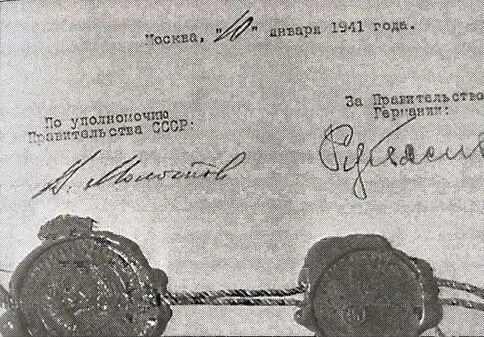 Москва, "10" января 1941 года.
По уполномочию
Правительства СССР:
За Правительство
Германии:
В. Молотов